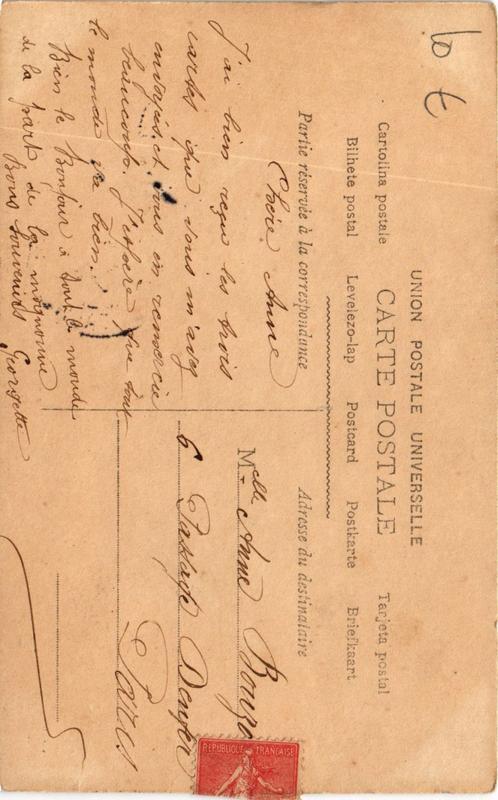 10 €
UNION POSTALE UNIVERSELLE
CARTE POSTALE
Cartolina postale Tarjeta postal
Bilhete postal Levelezo-lap Postcard Postkarte Briefkaart
Partie réservée à la correspondance
Adresse du destinataire
Chère Anne
J'ai bien reçu les trois
cartes que vous m'avez
envoyés et vous en remercie
beaucoup. J'espère que tout
le monde va bien.
Bien le Bonjour à tout le monde
de la part de la mignonne
Bons Souvenirs Georgette
Melle Anne
6 Passage Denfer
Paris
REPUBLIQUE FRANÇAISE